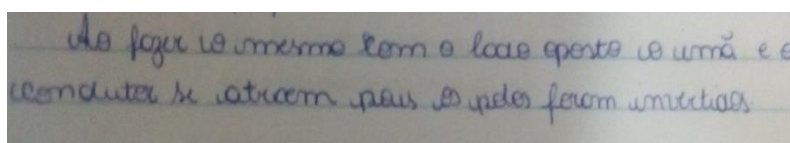 Ao fazer o mesmo com o lado oposto o umã e o
condutor se atraem pois os polos foram invertidos